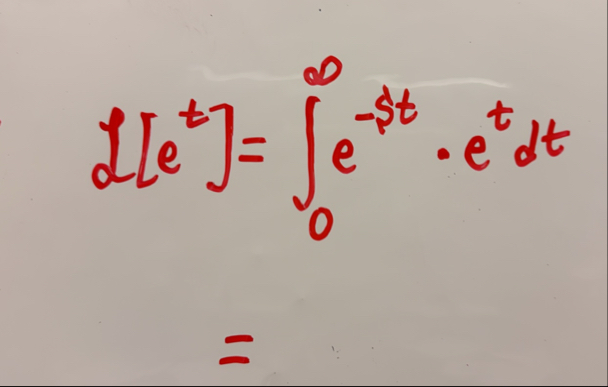 ℒ[e^t] = ∫_0^∞ e^{-st} · e^t dt
=